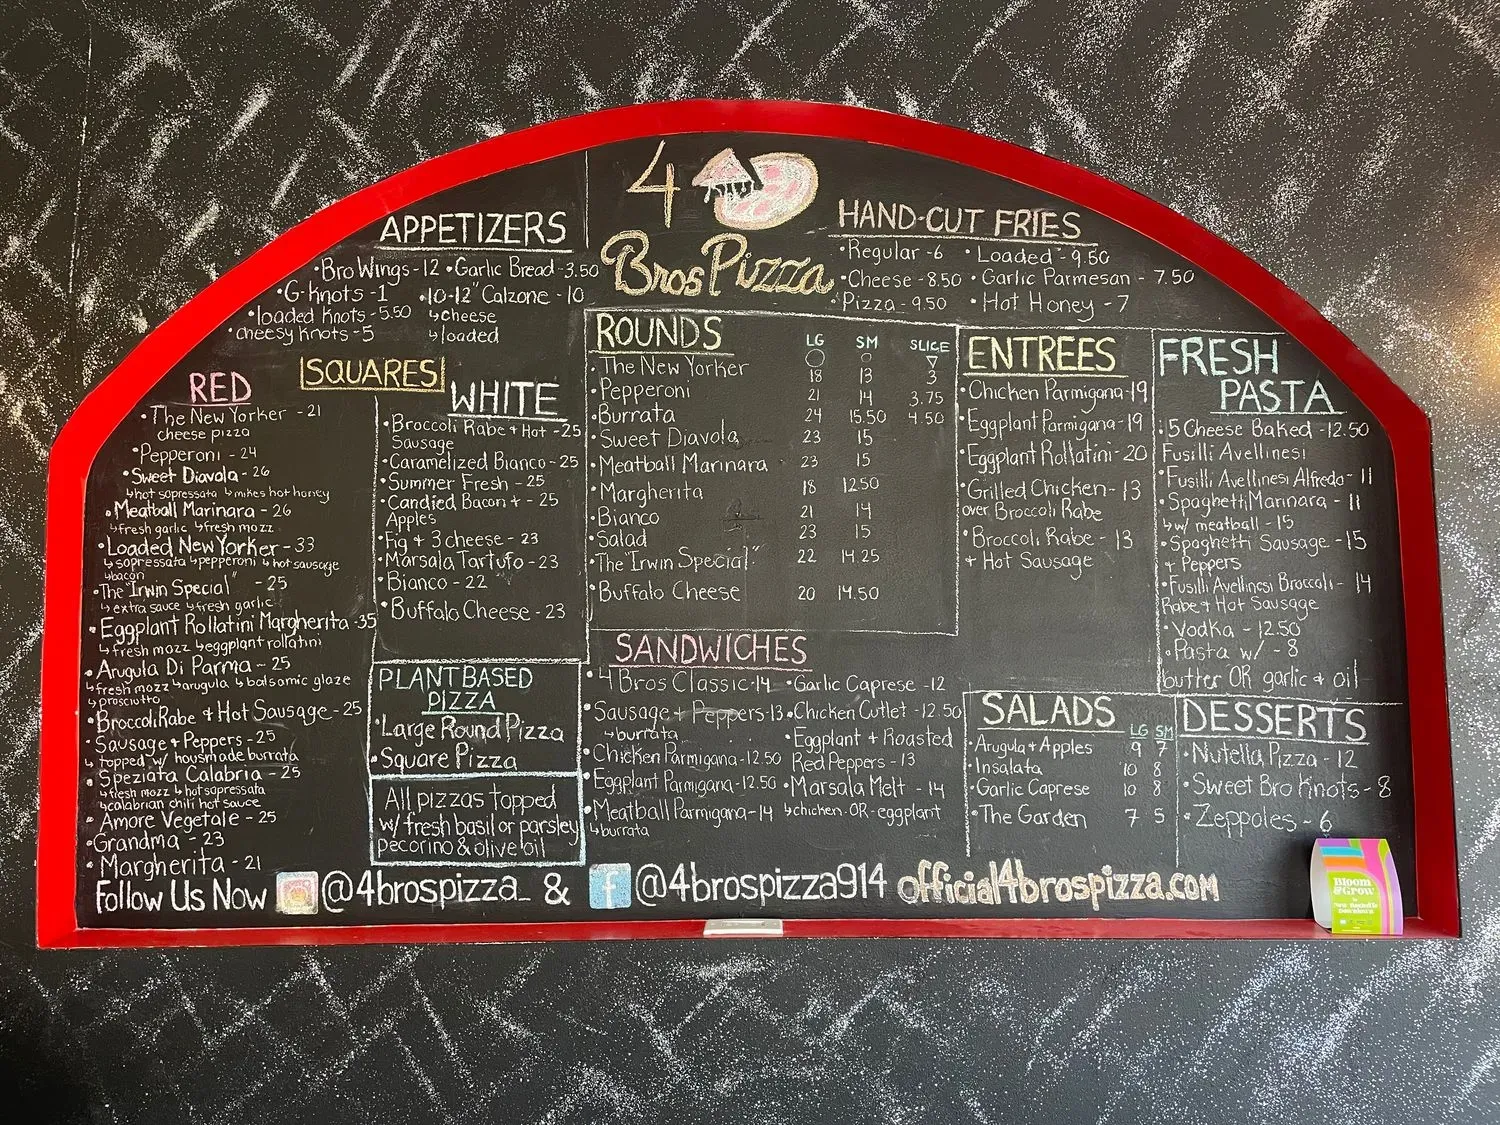 4
Bros Pizza
APPETIZERS
•Bro Wings - 12 •Garlic Bread - 3.50
•G-Knots - 1 •10-12" Calzone - 10
•loaded Knots - 5.50 ↳cheese
•cheesy Knots - 5 ↳loaded
HAND-CUT FRIES
•Regular - 6 •Loaded - 9.50
•Cheese - 8.50 •Garlic Parmesan - 7.50
•Pizza - 9.50 •Hot Honey - 7
SQUARES
RED
•The New Yorker - 21
cheese pizza
•Pepperoni - 24
•Sweet Diavola - 26
↳hot sopressata ↳mikes hot honey
•Meatball Marinara - 26
↳fresh garlic ↳fresh mozz
•Loaded New Yorker - 33
↳sopressata ↳pepperoni ↳hot sausage
↳bacon
•The "Irwin Special" - 25
↳extra sauce ↳fresh garlic
•Eggplant Rollatini Margherita - 35
↳fresh mozz ↳eggplant rollatini
•Arugula Di Parma - 25
↳fresh mozz ↳arugula ↳balsamic glaze
↳prosciutto
•Broccoli Rabe + Hot Sausage - 25
•Sausage + Peppers - 25
↳topped w/ housmade burrata
•Speziata Calabria - 25
↳fresh mozz ↳hot sopressata
↳calabrian chili hot sauce
•Amore Vegetale - 25
•Grandma - 23
•Margherita - 21
WHITE
•Broccoli Rabe + Hot - 25
Sausage
•Caramelized Bianco - 25
•Summer Fresh - 25
•Candied Bacon + - 25
Apples
•Fig + 3 cheese - 23
•Marsala Tartufo - 23
•Bianco - 22
•Buffalo Cheese - 23
PLANT BASED
PIZZA
•Large Round Pizza
•Square Pizza
All pizzas topped
w/ fresh basil or parsley
pecorino & olive oil
ROUNDS LG SM SLICE
•The New Yorker 18 13 3
•Pepperoni 21 14 3.75
•Burrata 24 15.50 4.50
•Sweet Diavola 23 15
•Meatball Marinara 23 15
•Margherita 18 12.50
•Bianco 21 14
•Salad 23 15
•The "Irwin Special" 22 14.25
•Buffalo Cheese 20 14.50
SANDWICHES
•4 Bros Classic - 14 •Garlic Caprese - 12
•Sausage + Peppers - 13 •Chicken Cutlet - 12.50
↳burrata •Eggplant + Roasted
•Chicken Parmigana - 12.50 Red Peppers - 13
•Eggplant Parmigana - 12.50 •Marsala Melt - 14
•Meatball Parmigana - 14 ↳chicken -OR- eggplant
↳burrata
ENTREES
•Chicken Parmigana - 19
•Eggplant Parmigana - 19
•Eggplant Rollatini - 20
•Grilled Chicken - 13
over Broccoli Rabe
•Broccoli Rabe - 13
+ Hot Sausage
FRESH
PASTA
•5 Cheese Baked - 12.50
Fusilli Avellinesi
•Fusilli Avellinesi Alfredo - 11
•Spaghetti Marinara - 11
↳w/ meatball - 15
•Spaghetti Sausage - 15
+ Peppers
•Fusilli Avellinesi Broccoli - 14
Rabe + Hot Sausage
•Vodka - 12.50
•Pasta w/ - 8
butter OR garlic & oil
SALADS LG SM
•Arugula + Apples 9 7
•Insalata 10 8
•Garlic Caprese 10 8
•The Garden 7 5
DESSERTS
•Nutella Pizza - 12
•Sweet Bro Knots - 8
•Zeppoles - 6
Follow Us Now @4brospizza_ & f @4brospizza914 official4brospizza.com
Bloom
&Grow